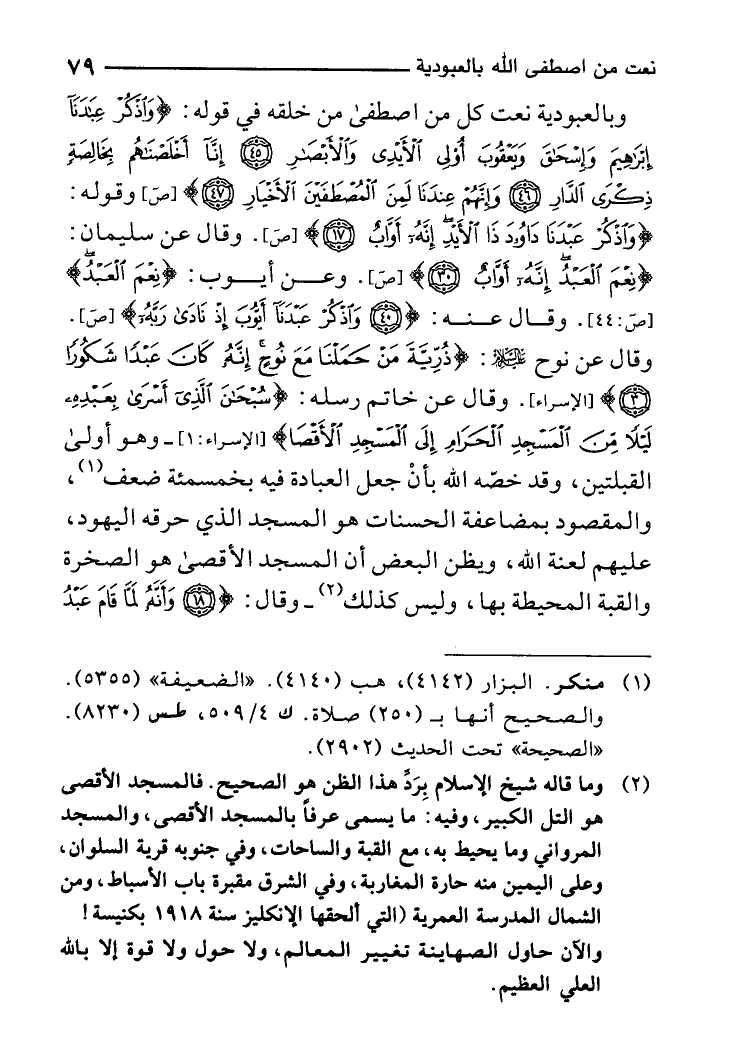 نعت من اصطفى الله بالعبودية ٧٩
وبالعبودية نعت كل من اصطفىٰ من خلقه في قوله: ﴿وَٱذْكُرْ عِبَٰدَنَآ
إِبْرَٰهِيمَ وَإِسْحَٰقَ وَيَعْقُوبَ أُو۟لِى ٱلْأَيْدِى وَٱلْأَبْصَٰرِ ۝٤٥ إِنَّآ أَخْلَصْنَٰهُم بِخَالِصَةٍ
ذِكْرَى ٱلدَّارِ ۝٤٦ وَإِنَّهُمْ عِندَنَا لَمِنَ ٱلْمُصْطَفَيْنَ ٱلْأَخْيَارِ ۝٤٧﴾ [صَ] وقوله:
﴿وَٱذْكُرْ عَبْدَنَا دَاوُۥدَ ذَا ٱلْأَيْدِ ۖ إِنَّهُۥٓ أَوَّابٌ ۝١٧﴾ [صَ]. وقال عن سليمان:
﴿نِعْمَ ٱلْعَبْدُ ۖ إِنَّهُۥٓ أَوَّابٌ ۝٣٠﴾ [صَ]. وعن أيوب: ﴿نِعْمَ ٱلْعَبْدُ ۖ﴾
[صَ:٤٤]. وقال عنه: ﴿۝٤٠ وَٱذْكُرْ عَبْدَنَآ أَيُّوبَ إِذْ نَادَىٰ رَبَّهُۥٓ﴾ [صَ].
وقال عن نوح عليه السلام: ﴿ذُرِّيَّةَ مَنْ حَمَلْنَا مَعَ نُوحٍ ۚ إِنَّهُۥ كَانَ عَبْدًا شَكُورًا
۝٣﴾ [الإسراء]. وقال عن خاتم رسله: ﴿سُبْحَٰنَ ٱلَّذِىٓ أَسْرَىٰ بِعَبْدِهِۦ
لَيْلًا مِّنَ ٱلْمَسْجِدِ ٱلْحَرَامِ إِلَى ٱلْمَسْجِدِ ٱلْأَقْصَا﴾ [الإسراء:١] ـ وهو أولىٰ
القبلتين، وقد خصّه الله بأنْ جعل العبادة فيه بخمسمئة ضعف(١)،
والمقصود بمضاعفة الحسنات هو المسجد الذي حرقه اليهود،
عليهم لعنة الله، ويظن البعض أن المسجد الأقصىٰ هو الصخرة
والقبة المحيطة بها، وليس كذلك(٢) ـ وقال: ﴿۝١٨ وَأَنَّهُۥ لَمَّا قَامَ عَبْدُ
(١) منكر. البزار (٤١٤٢)، هب (٤١٤٠). «الضعيفة» (٥٣٥٥).
والصحيح أنها بـ (٢٥٠) صلاة. ك ٥٠٩/٤، طس (٨٢٣٠).
«الصحيحة» تحت الحديث (٢٩٠٢).
(٢) وما قاله شيخ الإسلام بِرَدِّ هذا الظن هو الصحيح. فالمسجد الأقصى
هو التل الكبير، وفيه: ما يسمى عرفاً بالمسجد الأقصى، والمسجد
المرواني وما يحيط به، مع القبة والساحات، وفي جنوبه قرية السلوان،
وعلى اليمين منه حارة المغاربة، وفي الشرق مقبرة باب الأسباط، ومن
الشمال المدرسة العمرية (التي ألحقها الإنكليز سنة ١٩١٨ بكنيسة!
والآن حاول الصهاينة تغيير المعالم، ولا حول ولا قوة إلا بالله
العلي العظيم.